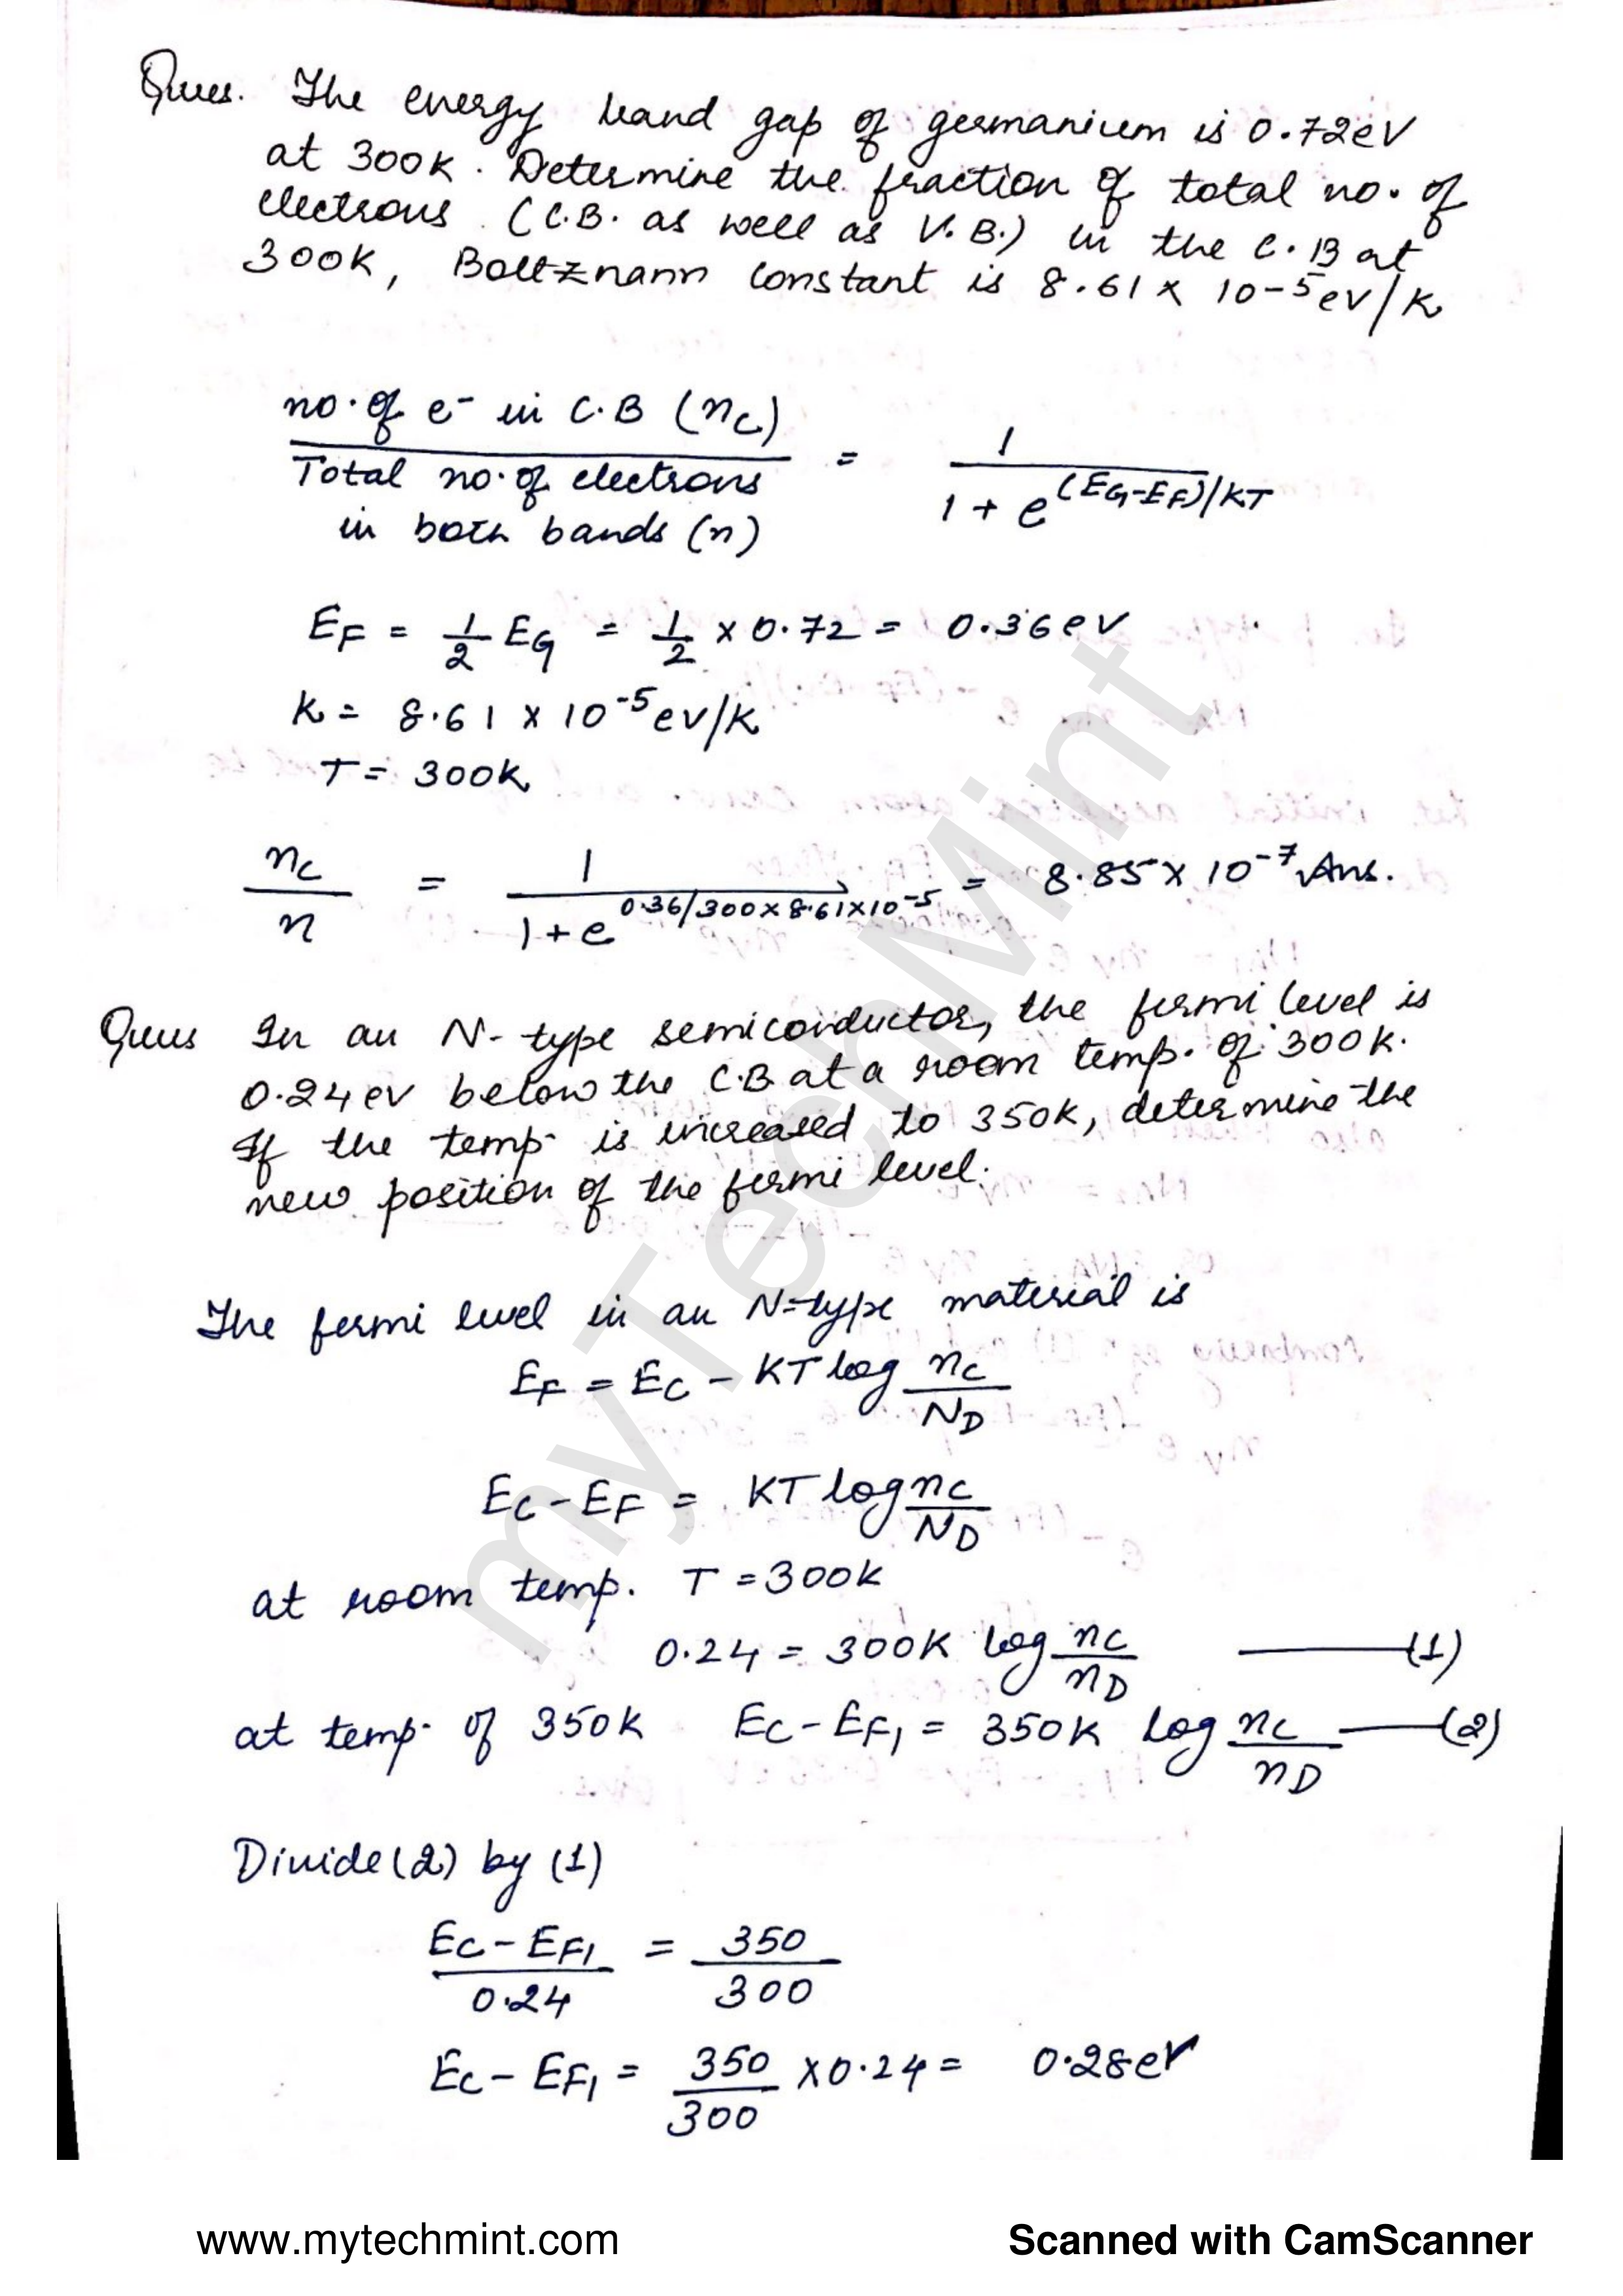 Ques. The energy band gap of germanium is 0.72eV
at 300K. Determine the fraction of total no. of
electrons (C.B. as well as V.B.) in the C.B at
300K, Boltznann constant is 8.61 x 10-5 ev/K
no. of e- in C.B (nc) / Total no. of electrons in both bands (n) = 1 / 1 + e^(EG-EF)/KT
EF = 1/2 EG = 1/2 x 0.72 = 0.36 ev
K = 8.61 x 10^-5 ev/K
T = 300K
nc / n = 1 / 1 + e^0.36/300x8.61x10^-5 = 8.85 x 10^-7 Ans.
Ques In an N-type semiconductor, the fermi level is
0.24 ev below the C.B at a room temp. of 300K.
If the temp. is increased to 350K, determine the
new position of the fermi level.
The fermi level in an N-type material is
EF = EC - KT log nc / ND
EC - EF = KT log nc / ND
at room temp. T = 300K
0.24 = 300K log nc / nD —(1)
at temp. of 350K EC - EF1 = 350K log nc / nD —(2)
Divide (2) by (1)
EC - EF1 / 0.24 = 350 / 300
EC - EF1 = 350 / 300 x 0.24 = 0.28eV
myTechMint
www.mytechmint.com
Scanned with CamScanner